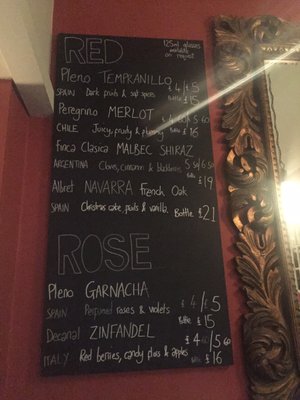 RED
125ml glasses
available
on request
Pleno TEMPRANILLO £4/£5
SPAIN Dark fruits & soft spices Bottle £15
Peregrino MERLOT
CHILE Juicy, plummy Bottle £16
Finca Clasica MALBEC SHIRAZ
ARGENTINA Cloves, cinnamon & blackberries
£19
Albret NAVARRA French Oak
SPAIN Christmas cake, fruits & vanilla. Bottle £21
ROSE
Pleno GARNACHA £4/£5
SPAIN Perfumed roses & violets Bottle £15
Decanal ZINFANDEL
ITALY Red berries, candy floss & apples £16